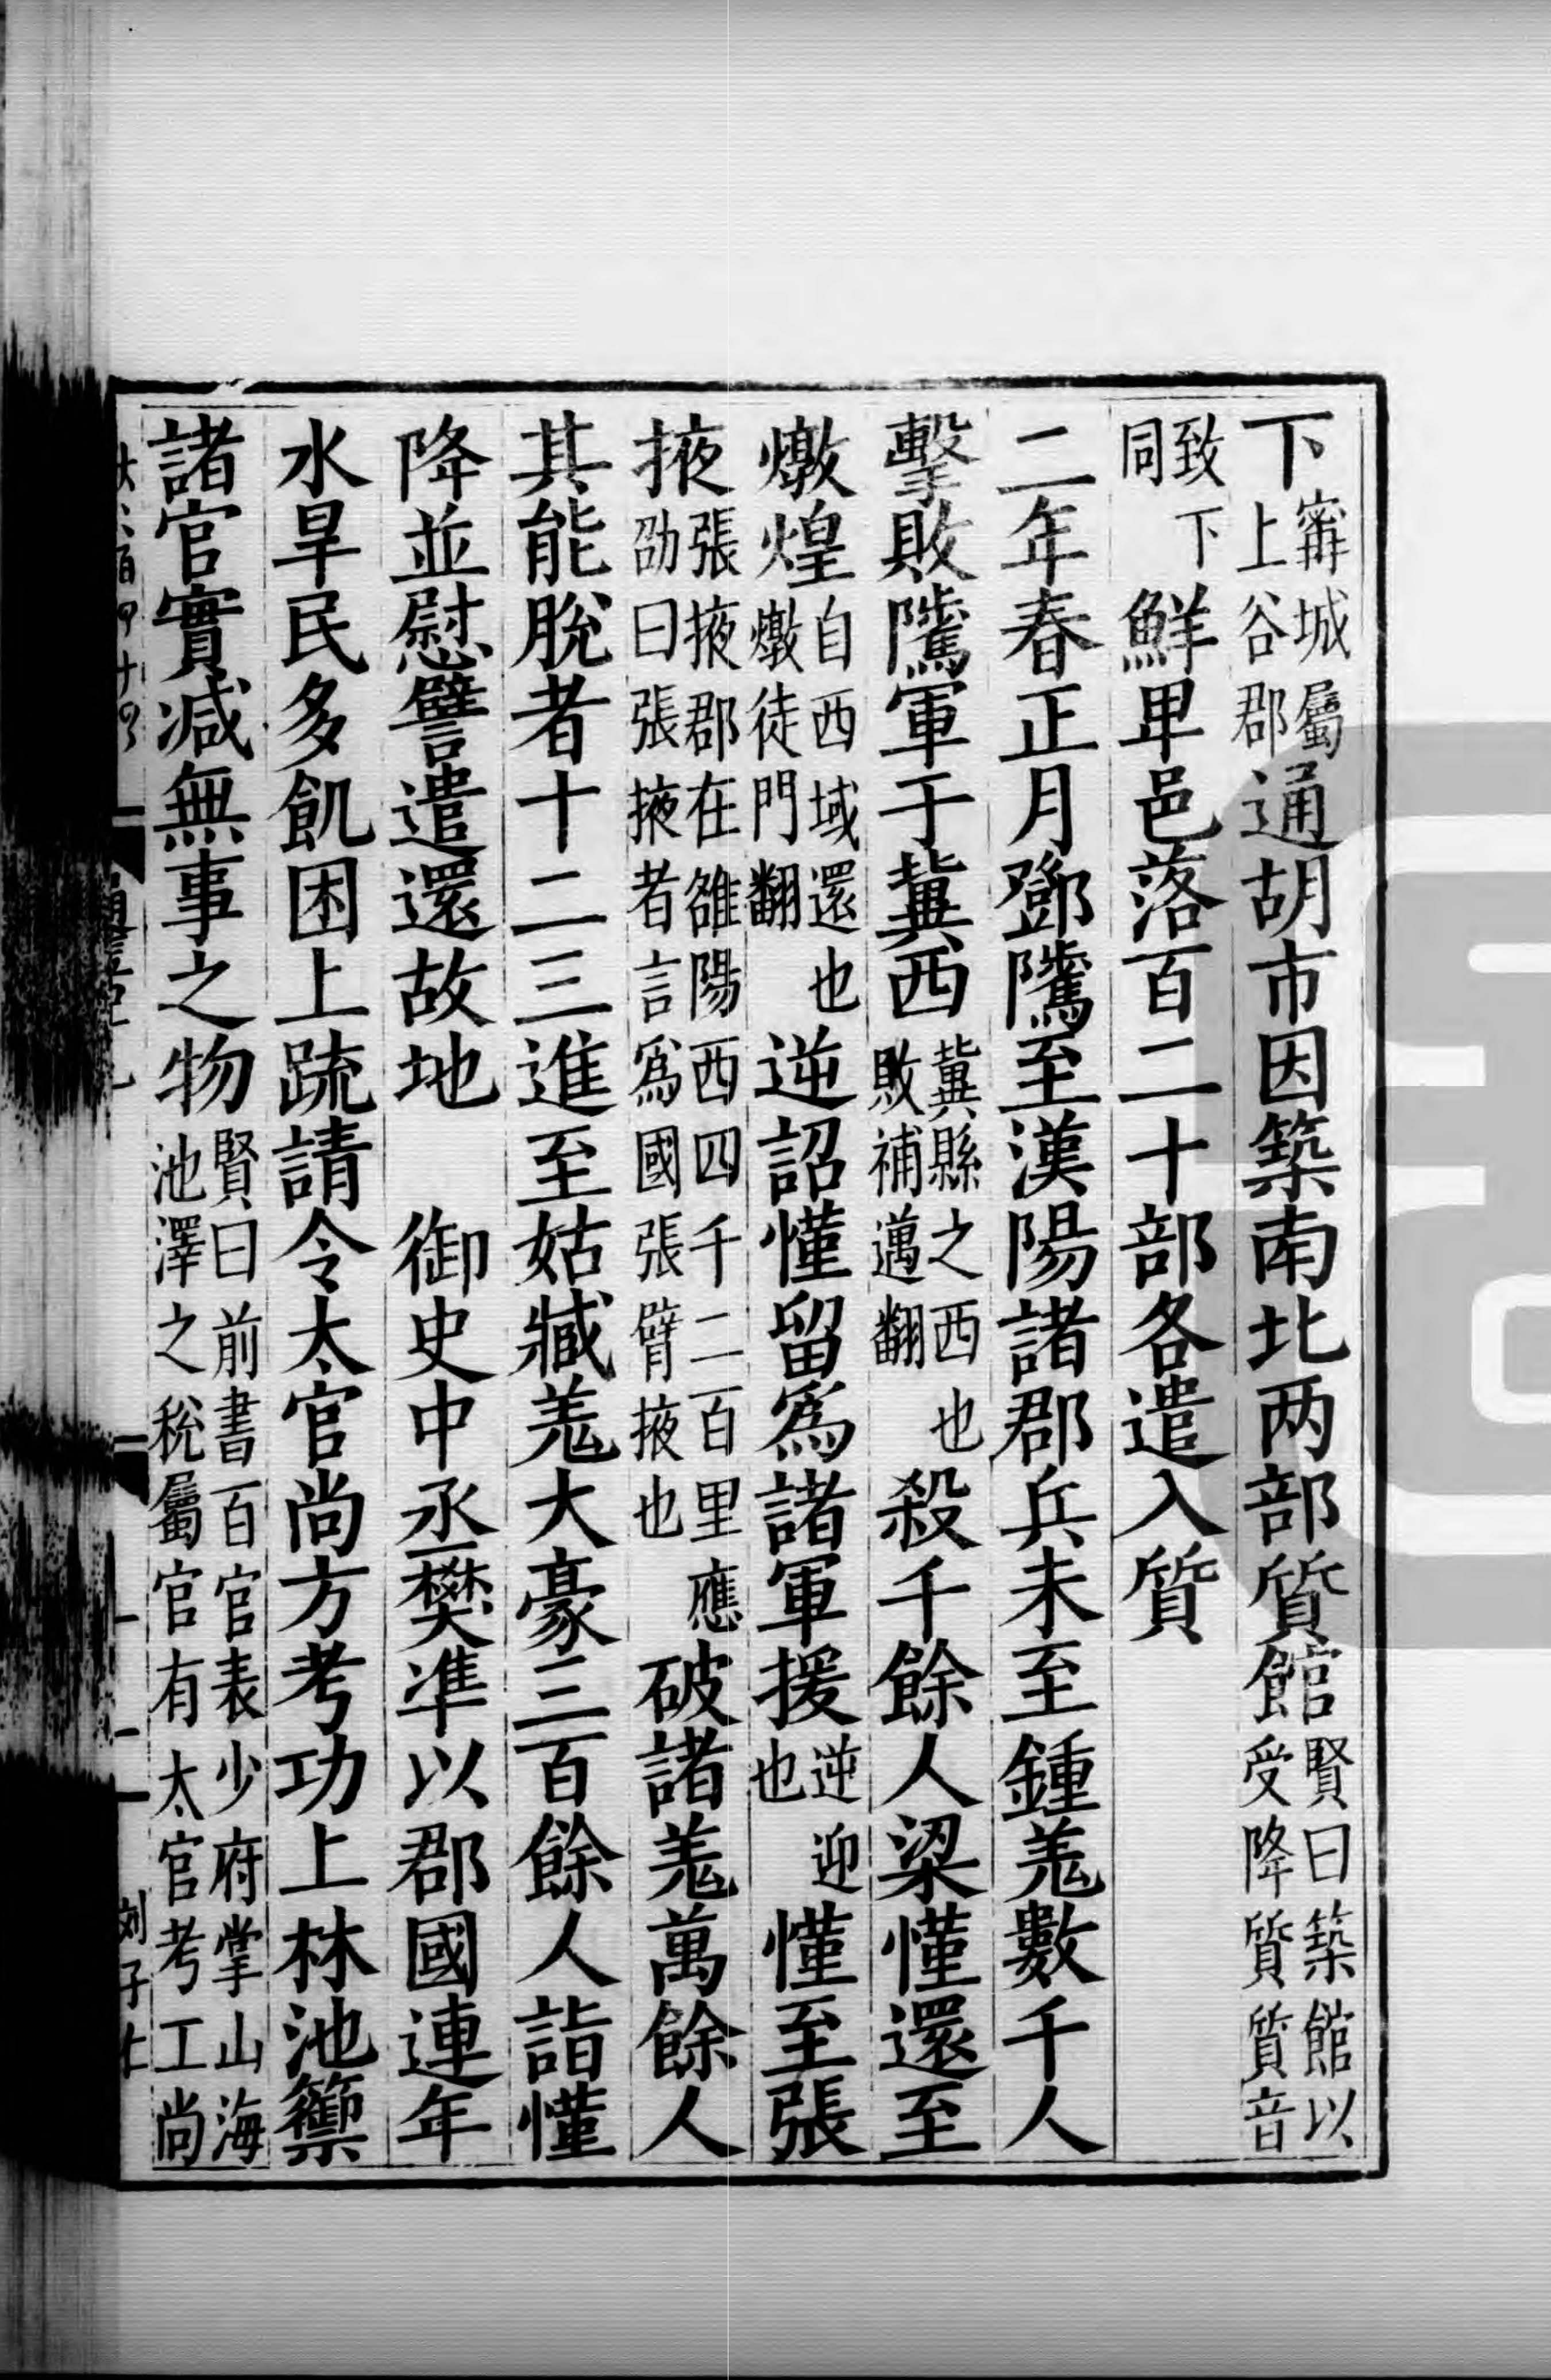 下甯城屬上谷郡通胡市因築南北两部質館賢曰築館以受降質質音
致下同鮮卑邑落百二十部各遣入質
二年春正月鄧隲至漢陽諸郡兵未至鍾羗數千人
擊敗隲軍于冀西冀縣之西也敗補邁翻殺千餘人梁慬還至
燉煌自西域還也燉徒門翻逆詔慬留爲諸軍援逆迎也慬至張
掖張掖郡在雒陽西四千二百里應劭曰張掖者言爲國張臂掖也破諸羗萬餘人
其能脫者十二三進至姑臧羗大豪三百餘人詣慬
降並慰譬遣還故地 御史中丞樊準以郡國連年
水旱民多飢困上疏請令太官尚方考功上林池籞
諸官實減無事之物賢曰前書百官表少府掌山海池澤之稅屬官有太官考工尚